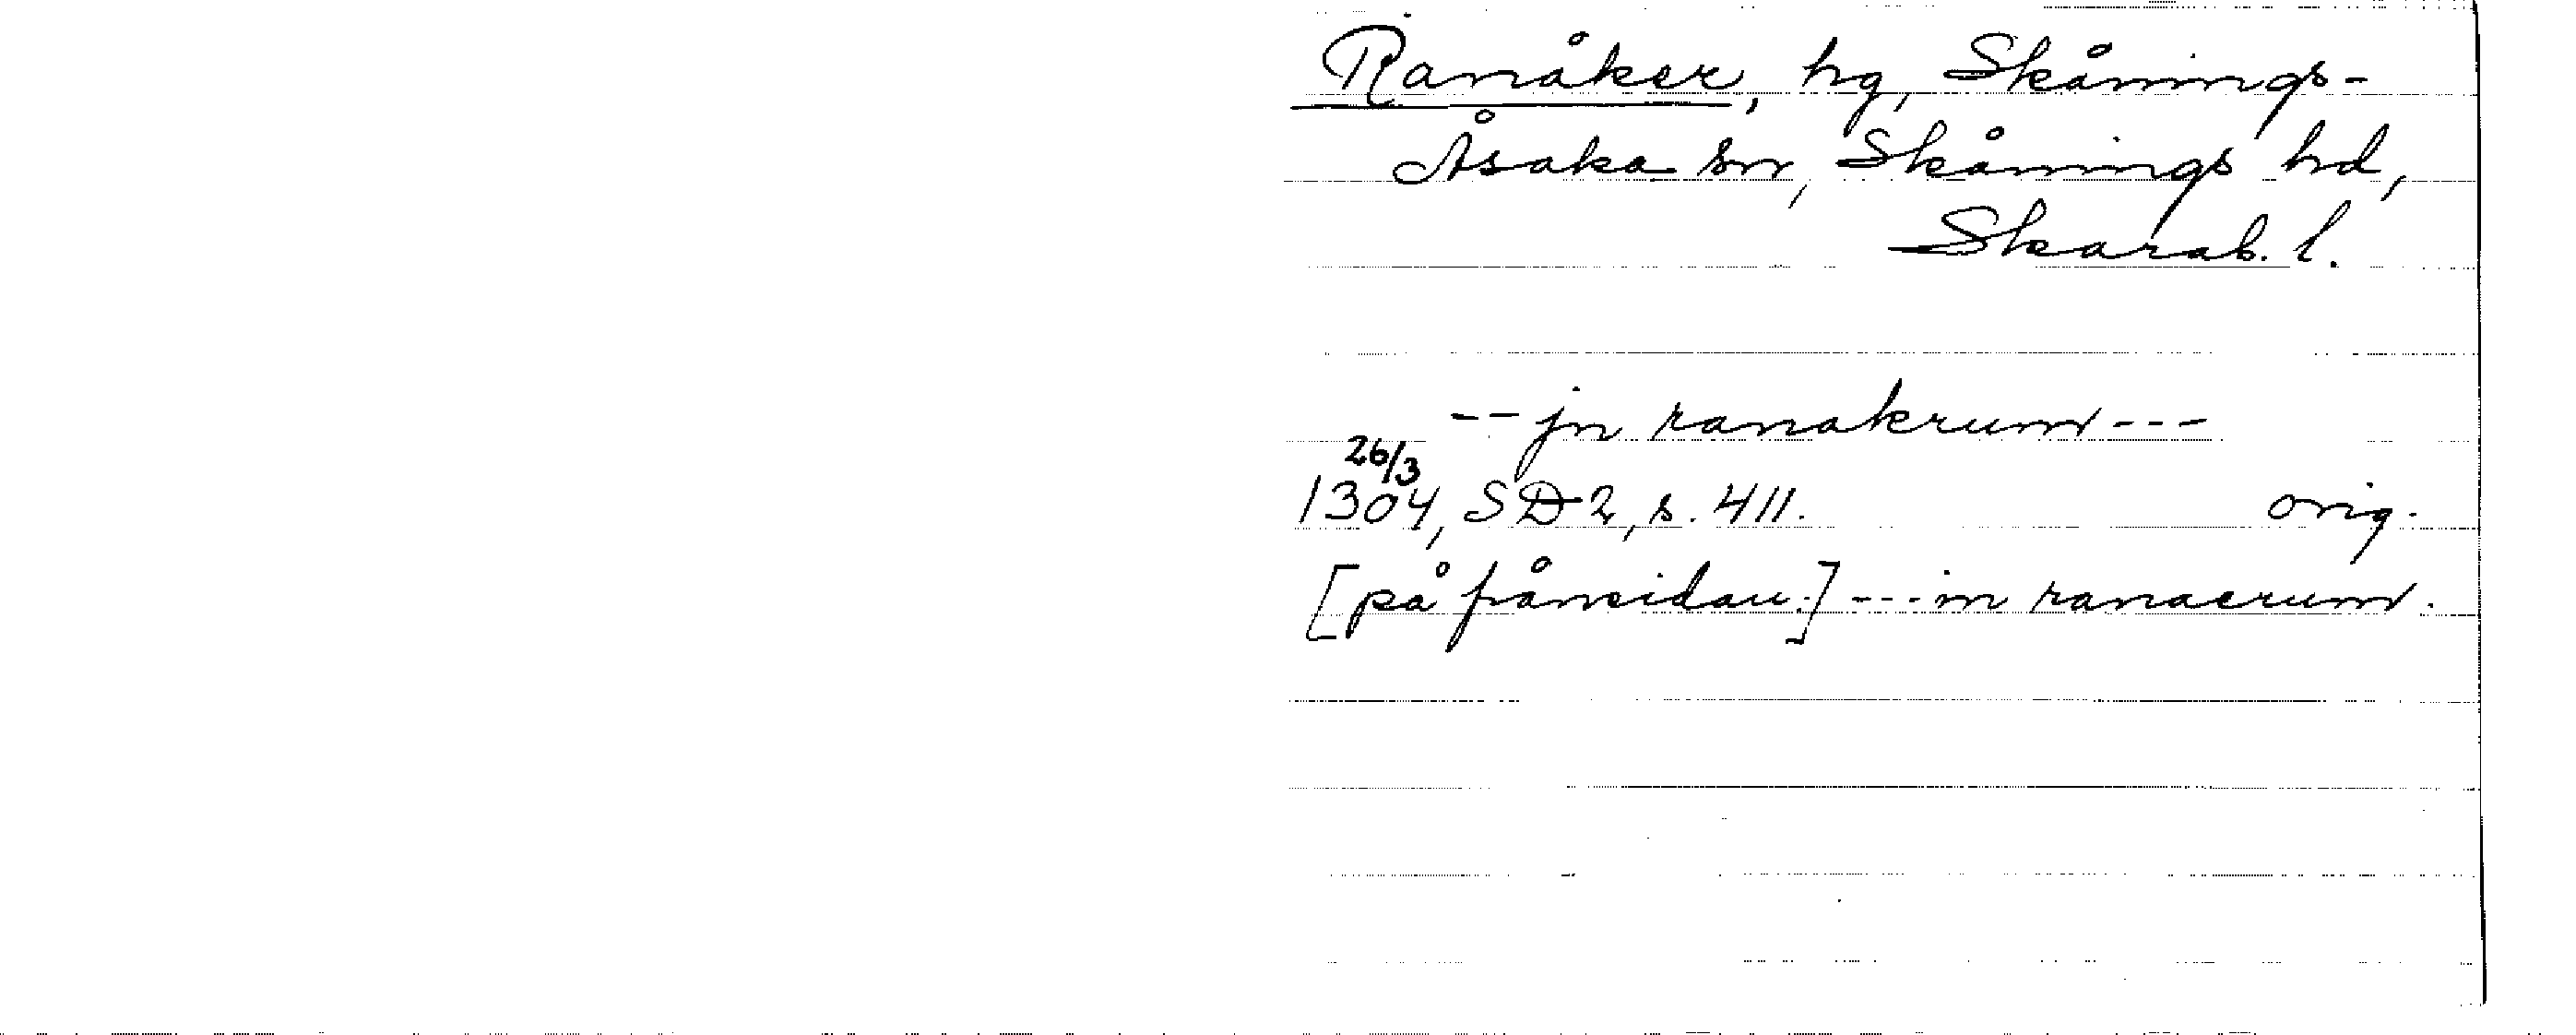 Ranåker, hg, Skånings-
Åsaka sn, Skånings hd,
Skarab. l.
-- jn ranakrum ---
26/3
1304, SD 2, s. 411. orig.
[på frånsidan:] --- in ranacrum.